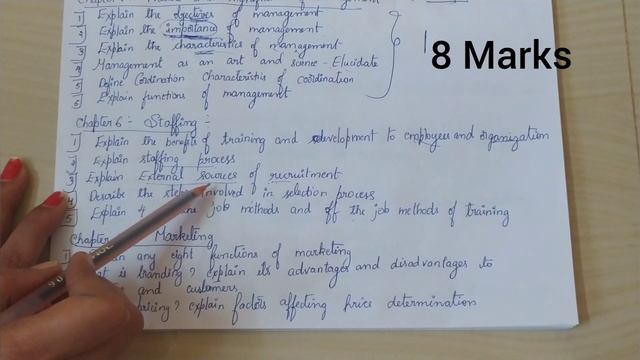 of management
1 Explain the objectives of management
2 Explain the importance of management
3 Explain the characteristics of management
4 Management as an art and science - Elucidate
5 Define Cordination Characteristics of coordination
6 Explain functions of management
8 Marks
Chapter 6 :- Staffing :-
1 Explain the benefits of training and development to employees and organization
2 Explain staffing process
3 Explain External sources of recruitment
4 Describe the steps involved in selection process
5 Explain 4 job methods and off the job methods of training
Chapter Marketing
1 any eight functions of marketing
is branding? explain its advantages and disadvantages to
and customers
pricing? explain factors affecting price determination